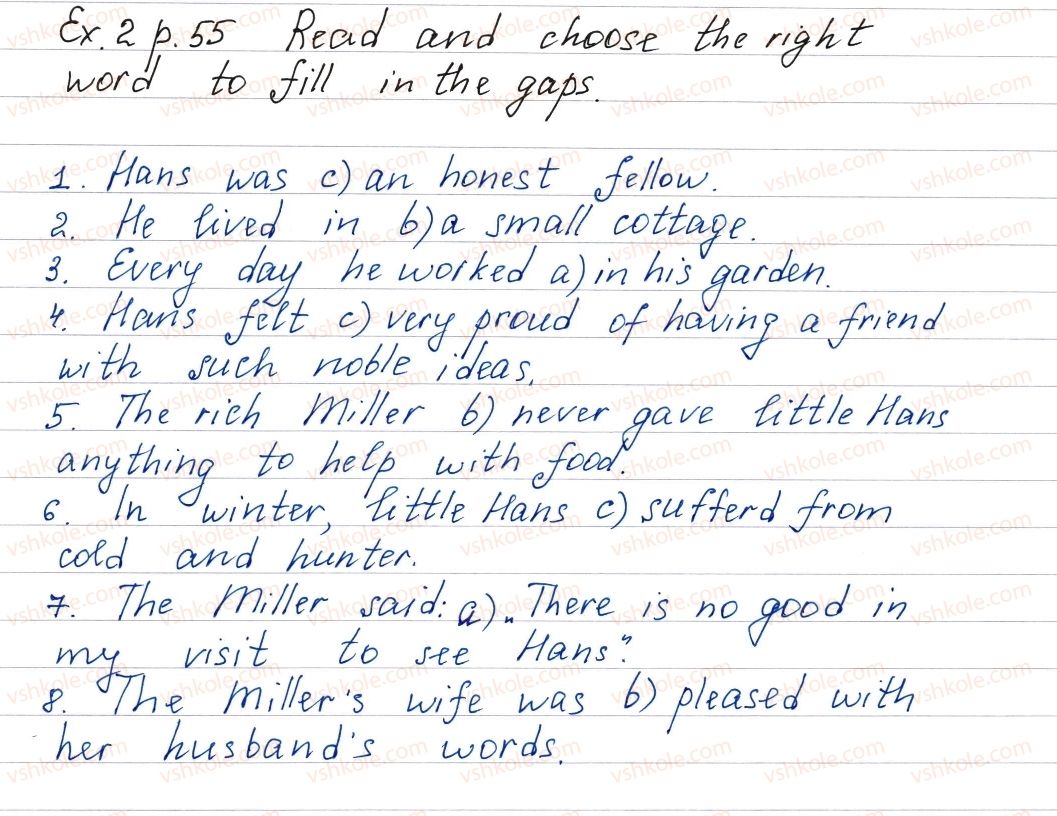 Ex. 2 p. 55 Read and choose the right
word to fill in the gaps.
1. Hans was c) an honest fellow.
2. He lived in b) a small cottage.
3. Every day he worked a) in his garden.
4. Hans felt c) very proud of having a friend
with such noble ideas.
5. The rich Miller b) never gave little Hans
anything to help with food.
6. In winter, little Hans c) sufferd from
cold and hunter.
7. The Miller said: a) „There is no good in
my visit to see Hans".
8. The Miller's wife was b) pleased with
her husband's words.